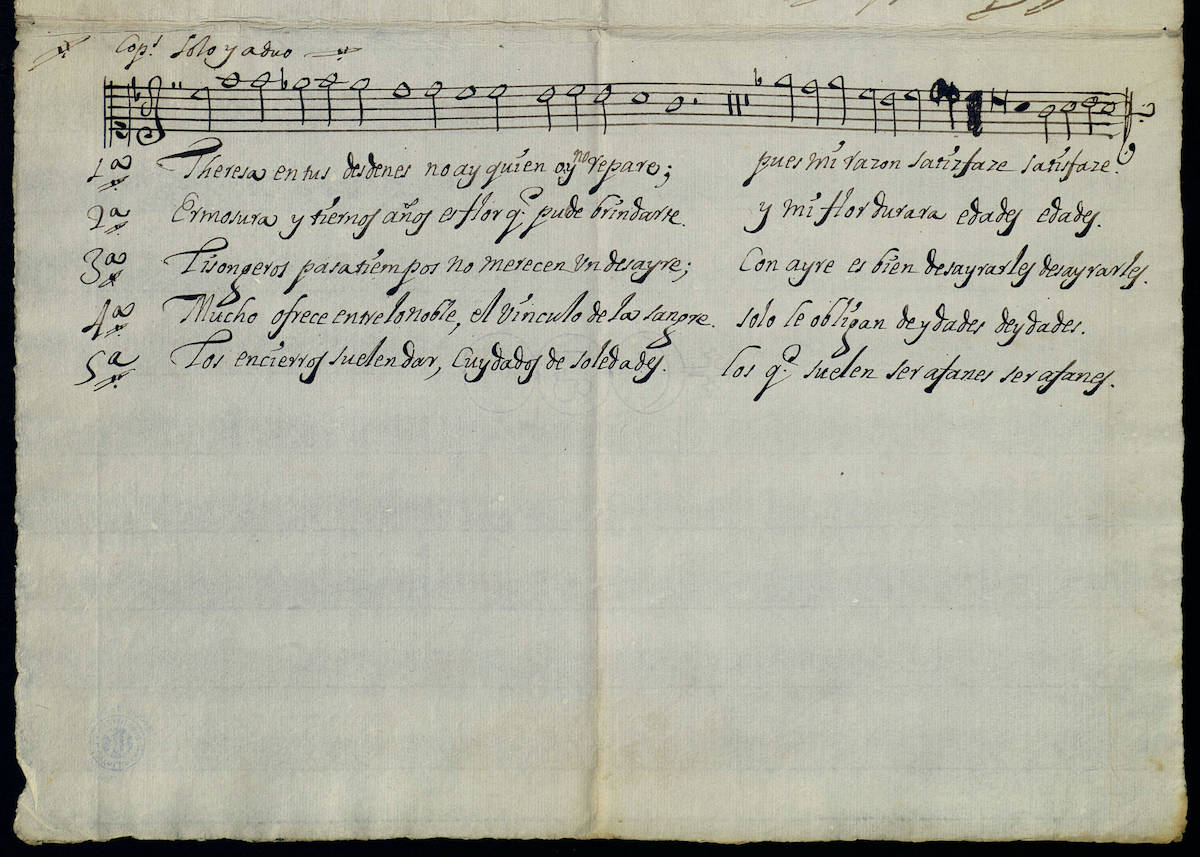 Cop.s solo y a duo
1a Theresa en tus desdenes no ay quien oy no repare; pues mi razon satisfaze satisfaze.
2a Ermosura y tiernos años es flor q.e pude brindarte. y mi flor durara edades edades.
3a Lisongeros pasatiempos no merecen un desayre; Con ayre es bien desayrarles desayrarles.
4a Mucho ofrece entre lo noble, el vinculo de la sangre. solo le obligan deydades deydades.
5a Los encierros suelen dar, Cuydados de soledades. los q.e suelen ser afanes ser afanes.